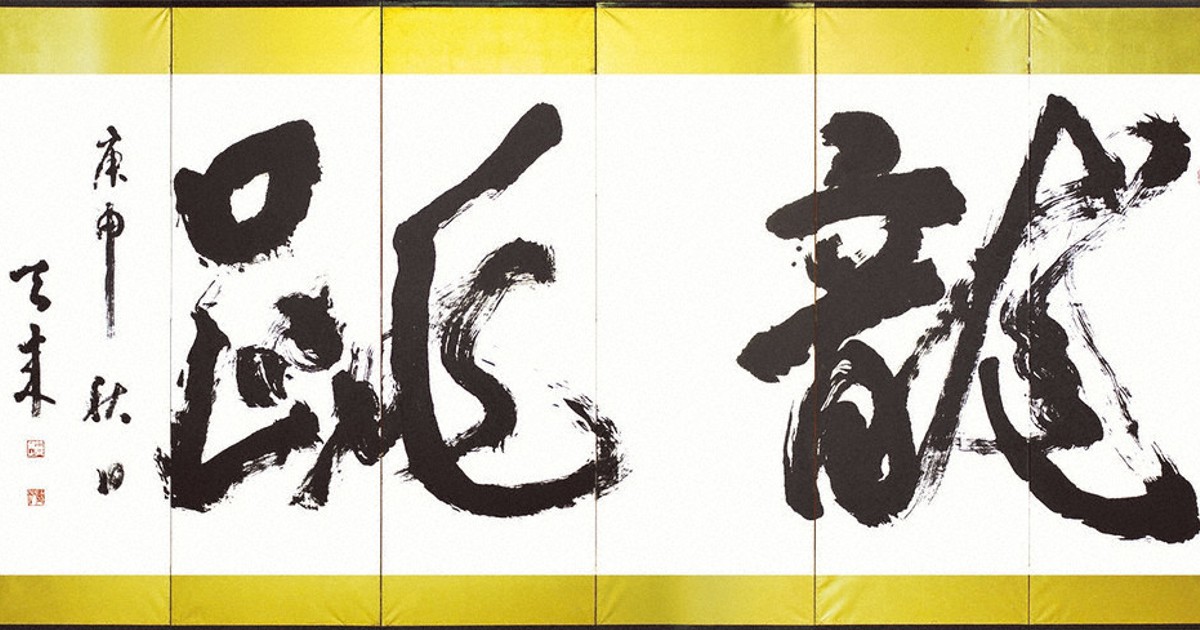 龍跳
庚申秋日
天来